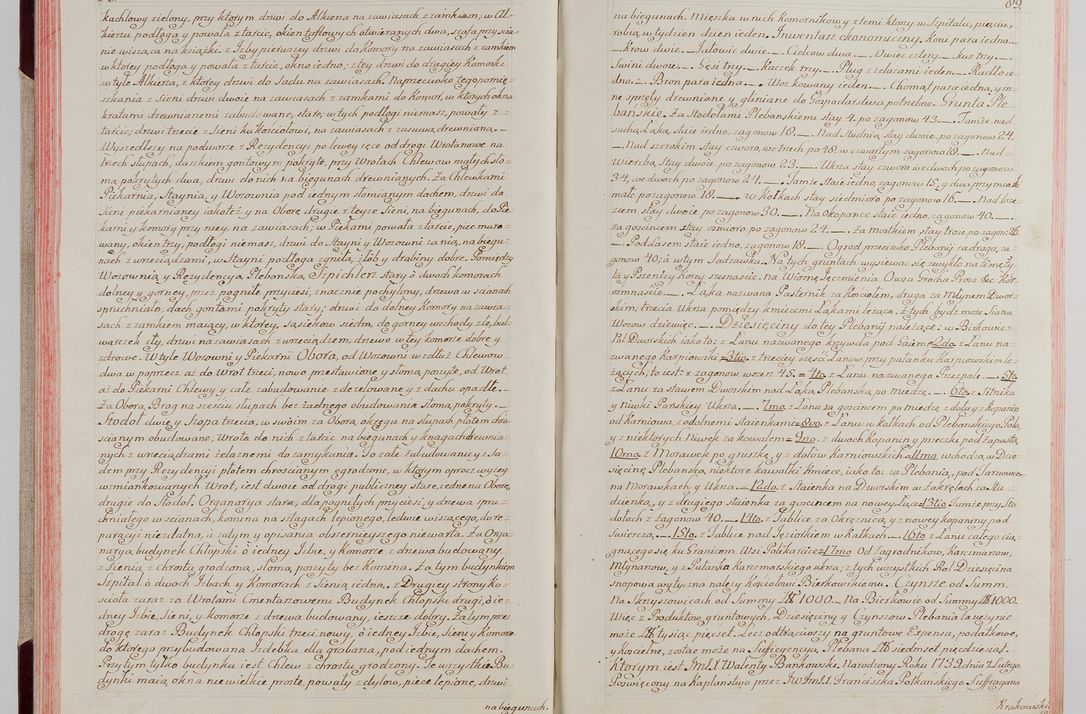 kachlowy zielony, przy którym drzwi do Alkierza na zawiasach z zamkiem; w Al=
kierzu podłoga y powała z tarcic, okien tyflowych otwieranych dwa, szafa przy ścia=
nie wisząca na książki. z Izby pierwszej drzwi do Komory na zawiasach z zamkiem
w ktorey podłoga y powała z tarcic, okno iedno; z tey drzwi do drugiey Komorki
w tyle Alkierza, z ktorey drzwi do Sadu na zawiasach. Naprzeciwko tego pomie=
szkania z Sieni drzwi dwoie na zawiasach z zamkami do Komor, w ktorych okna
kratami drewnianemi zabudowane, stare, w tych podłogi niemasz, powały z
tarcic; drzwi trzecie z Sieni ku Kościołowi, na zawiasach z zasuwą drewnianą. —
Wyszedłszy na podworze z Rezydencyi po lewey ręce od drogi Wrota nowe na
trzech słupach, daszkiem gontowym pokryte, przy Wrotach Chlewow małych sło=
mą pokrytych dwa, drzwi do nich na biegunach drewnianych. Za Chlewkami
Piekarnia, Staynia, y Wozownia pod iednym słomianym dachem, drzwi do
Sieni piekarnianey iakoteż y na Oborę drugie z teyże Sieni, na biegunach, do Pie=
karni y komory przy niey, na zawiasach; w Piekarni powała z tarcic, piec muro=
wany, okien trzy, podłogi niemasz, drzwi do Stayni y Wozowni za nią, na biegu=
nach z wrzeciądzami, w Stayni podłoga zgniła, żłob y drabiny dobre. Pomiędzy
Wozownią y Rezydencyą Plebańską Szpichlerz stary o dwoch komorach
dolney y gorney, przez pogniłe przyciesi, znacznie pochylony, drzewo w ścianach
spruchniało, dach gontami pokryty stary; drzwi do dolney Komory na zawia=
sach z zamkiem maiący, w ktorey, sąsiekow siedm, do gorney wschody złe, bal=
warczek zły, drzwi na zawiasach z wrzeciądzem, drzewo w tey komorze dobre y
zdrowe. W tyle Wozowni y Piekarni Obora, od Wozowni wzdłuż Chlewow
dwa w poprzecz aż do Wrot trzeci, nowo przestawione y słomą poszyte, od Wrot
aż do Piekarni Chlewy y całe zabudowanie zdezelowane y z dachu opadłe. —
Za Oborą, Brog na sześciu słupach bez żadnego obudowania słomą pokryty. —
Stodoł dwie y Szopa trzecia, w swoim za Oborą, okręgu na słupach płotem chro=
ścianym obudowane, Wrota do nich z tarcic na biegunach y knagach drewnia=
nych z wrzeciądzami żelaznemi do zamykania. To całe zabudowanie y z Sa=
dem przy Rezydencyi płotem chrościanym ogrodzone, w ktorym oprocz wyżey
wzmiankowanych Wrot, iest dwoie od drogi publiczney stare, iedne na Oborę,
drugie do Stodoł. Organarya stara, dla pogniłych przyciesi, y drzewa spru=
chniałego w ścianach, komina na szlagach lepionego, ledwie wiszącego, do re=
paracyi niezdatna, a zatym y opisania obszernieyszego niewarta. Za Orga=
naryą budynek Chłopski o iedney Izbie, y komorze z drzewa budowany
z Sienią z chrostu grodzoną, słomą poszyty bez Komina. Za tym budynkiem
Szpital o dwoch Izbach y Komorach z Sienią iedną. z Drugiey strony Ko=
ścioła zaraz za Wrotami Cmentarzowemi Budynek Chłopski drugi, o ie=
dney Izbie, Sieni, y Komorze z drzewa budowany, ieszcze dobry. Za tym przez
drogę zaraz Budynek Chłopski trzeci nowy, o iedney Izbie, Sieni y Komorze
do ktorego przybudowana Izdebka dla grabarza, pod iednym dachem.
Przy tym tylko budynku iest Chlew z chrostu grodzony. Te wszystkie Bu=
dynki maią okna niewielkie proste, powały z dylow, piece lepione, drzwi
na biegunach.
89.
na biegunach. Mieszka w nich Komornikow y z temi ktorzy w Szpitalu, pięciu,
robią w tydzień dzień ieden. Inwentarz ekonomiczny. Koni para iedna. —
— Krow dwie. — Jałowic dwie. — Cieląt dwa. — Owiec cztery. — Kur trzy. —
Swini dwoie. — Gęsi trzy. — Kaczek trzy. — Pług z żelazami ieden. — Radło ie=
dno. — Bron para iedna. — Woz kowany ieden. — Chomąt para iedna, y in=
ne sprzęty drewniane y gliniane do gospodarstwa potrzebne. Grunta Ple=
bańskie. Za Stodołami Plebańskiemi stay 4. po zagonow 43. — Tamże nad
suchą Łąką, staie iedno, zagonow 16. — Nad Studnią stay dwoie, po zagonow 24.
— Nad szerokim stay czworo, we trzech po 48. w czwartym zagonow 18. — Nad
Wierzbą Stay dwoie po zagonow 23. — Ukrza stay czworo we dwoch po zagonow
34, we dwoch po zagonow 24. — Tamże Staie iedno, zagonow 15, y dwa przymiarki
małe po zagonow 18. — w Kątkach stay siedmioro po zagonow 16. — Nad brze=
ziem stay dwoie po zagonow 30. — Na Okopance staie iedno, zagonow 40. —
za gościncem stay ośmioro po zagonow 24. — Za mostkiem stay troie po zagonow 26.
— Pod Lasem staie iedno, zagonow 18. — Ogrod przeciwko Plebanij za drogą, za=
gonow 40; a w tym Sadzawka. Na tych gruntach wysiewać się zwykło na Zimę Ży=
ta y Pszenicy Korcy szesnaście. na Wiosnę Jęczmienia Owsa Grochu Prosa &c. Kor:
ośmnaście. — Łąka nazwana Pasternik za Kościołem, druga za Młynem Dwor=
skim; trzecia Ukrza pomiędzy kmiecemi Łąkami leżąca. Z tych bydź może Siana
Wozow dziewięć. — Dziesięciny do tey Plebanij należące: w Bierkowie=
Pol Dworskich iako to: z Łanu nazwanego krzywda pod Gaiem. 2do. z Łanu na=
zwanego karpiowskie. 3tio. z trzeciey części Łanow przy putanku Karpiowskim le=
żących, to iest: z zagonow wszerz 45. — 4to. z Łanu nazwanego Przezpole. — 5to
z Łanu za stawem Dworskim nad Łąką Plebańską po miedzę. — 6to. z Sitnika
y niwki Pańskiey Ukrza. — 7mo. z Łanu za gościncem po miedzę z doły y Kopanin
od Karniowa, z odalnemi staienkami. 8vo. z Łanu w kątkach od Plebańskiego Pola,
y z niektorych Niwek za kowalem. 9no. z dwoch Kopanin y przeczki pod Zapustą
10mo. z Morawek po gruszkę, y z dołow karniowskich. 11mo. wchodzą w Dzie=
sięcinę Plebańską, niektore kawałki kmiece, iako to: za Plebanią, pod Tarnowką
na Morawkach y Ukrza. — 12do. z Staienka na Dworskim w zakrętach za Stu=
dzienką, y z drugiego staionka za gościncem na nowey Łące. 13tio. Tamże przy Sto=
dołach z zagonow 40. — 14to. z Tablice za Okrężnicą, y z nowey kopaniny pod
Swierczą. — 15to. z Tablice nad Jeziorkiem w kątkach. — 16to z Łanu całego cią=
gnącego się ku Graniom Wsi Polikarcic. 17mo. Od Zagrodnikow, Karczmarzow,
Młynarzow, y z Putanka karczmarskiego ukrza; z tych wszystkich Rol Dziesięcina
snopowa wytyczna należy Kościołowi Bierkowskiemu. Czynsze od Summ.
Na Skrzyszowicach od Summy Zł 1000. — Na Bierkowie od Summy Zł 1000.
Więc z Produktow gruntowych, Dziesięciny y Czynszow Plebania ta uczynić
może Zł tysiąc pięćset. Lecz odtrąciwszy na gruntowe Expensa, podatkowe,
y kościelne, zostać może na Sufficyencyą, Plebana Zł siedmset pięćdziesiąt.
Ktorym iest JmX Walenty Bankowski. Narodzony Roku 1739. dnia 4. Lutego.
Poswięcony na Kapłaństwo przez JW JmX Franciszka Potkańskiego Suffragana
Krakowski=